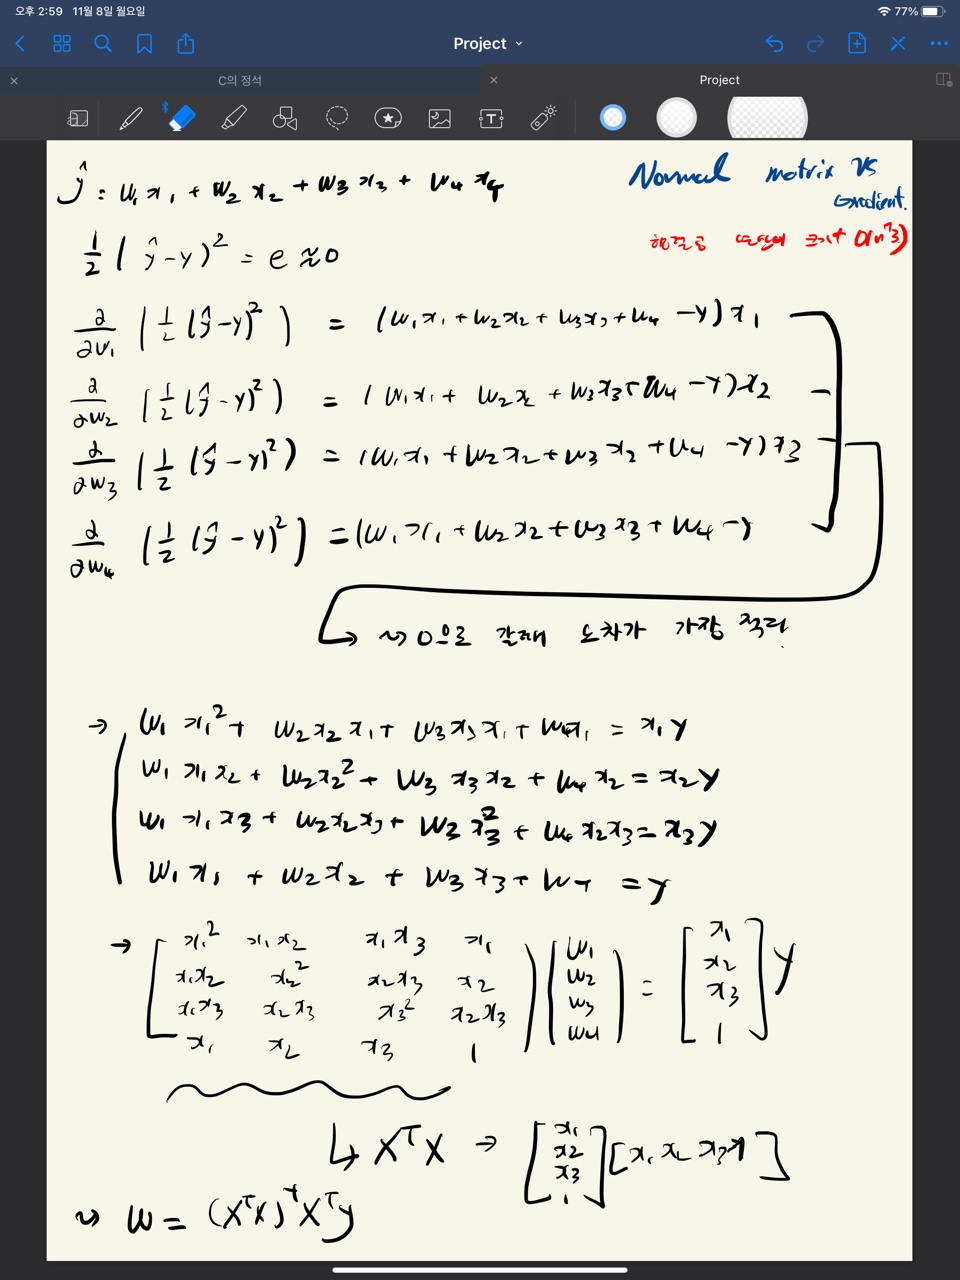 오후 2:59 11월 8일 월요일 77%
Project
C의 정석 Project
ŷ = w₁x₁ + w₂x₂ + w₃x₃ + w₄x₄
Normal matrix vs
Gradient.
O(n^3)
½(ŷ-y)² = e ≈ 0
∂/∂w₁ (½(ŷ-y)²) = (w₁x₁ + w₂x₂ + w₃x₃ + w₄ - y)x₁
∂/∂w₂ (½(ŷ-y)²) = (w₁x₁ + w₂x₂ + w₃x₃ + w₄ - y)x₂
∂/∂w₃ (½(ŷ-y)²) = (w₁x₁ + w₂x₂ + w₃x₂ + w₄ - y)x₃
∂/∂w₄ (½(ŷ-y)²) = (w₁x₁ + w₂x₂ + w₃x₃ + w₄ - y
→ ~> 0으로 갈때 오차가 가장 적다.
→ w₁x₁² + w₂x₂x₁ + w₃x₃x₁ + w₄x₁ = x₁y
w₁x₁x₂ + w₂x₂² + w₃x₃x₂ + w₄x₂ = x₂y
w₁x₁x₃ + w₂x₂x₃ + w₃x₃² + w₄x₂x₃ = x₃y
w₁x₁ + w₂x₂ + w₃x₃ + w₄ = y
→ [x₁² x₁x₂ x₁x₃ x₁
x₁x₂ x₂² x₂x₃ x₂
x₁x₃ x₂x₃ x₃² x₂x₃
x₁ x₂ x₃ 1] [w₁ w₂ w₃ w₄] = [x₁ x₂ x₃ 1] y
↳ XᵀX → [x₁ x₂ x₃ 1] [x₁ x₂ x₃ 1]
~> w = (XᵀX)⁻¹Xᵀy